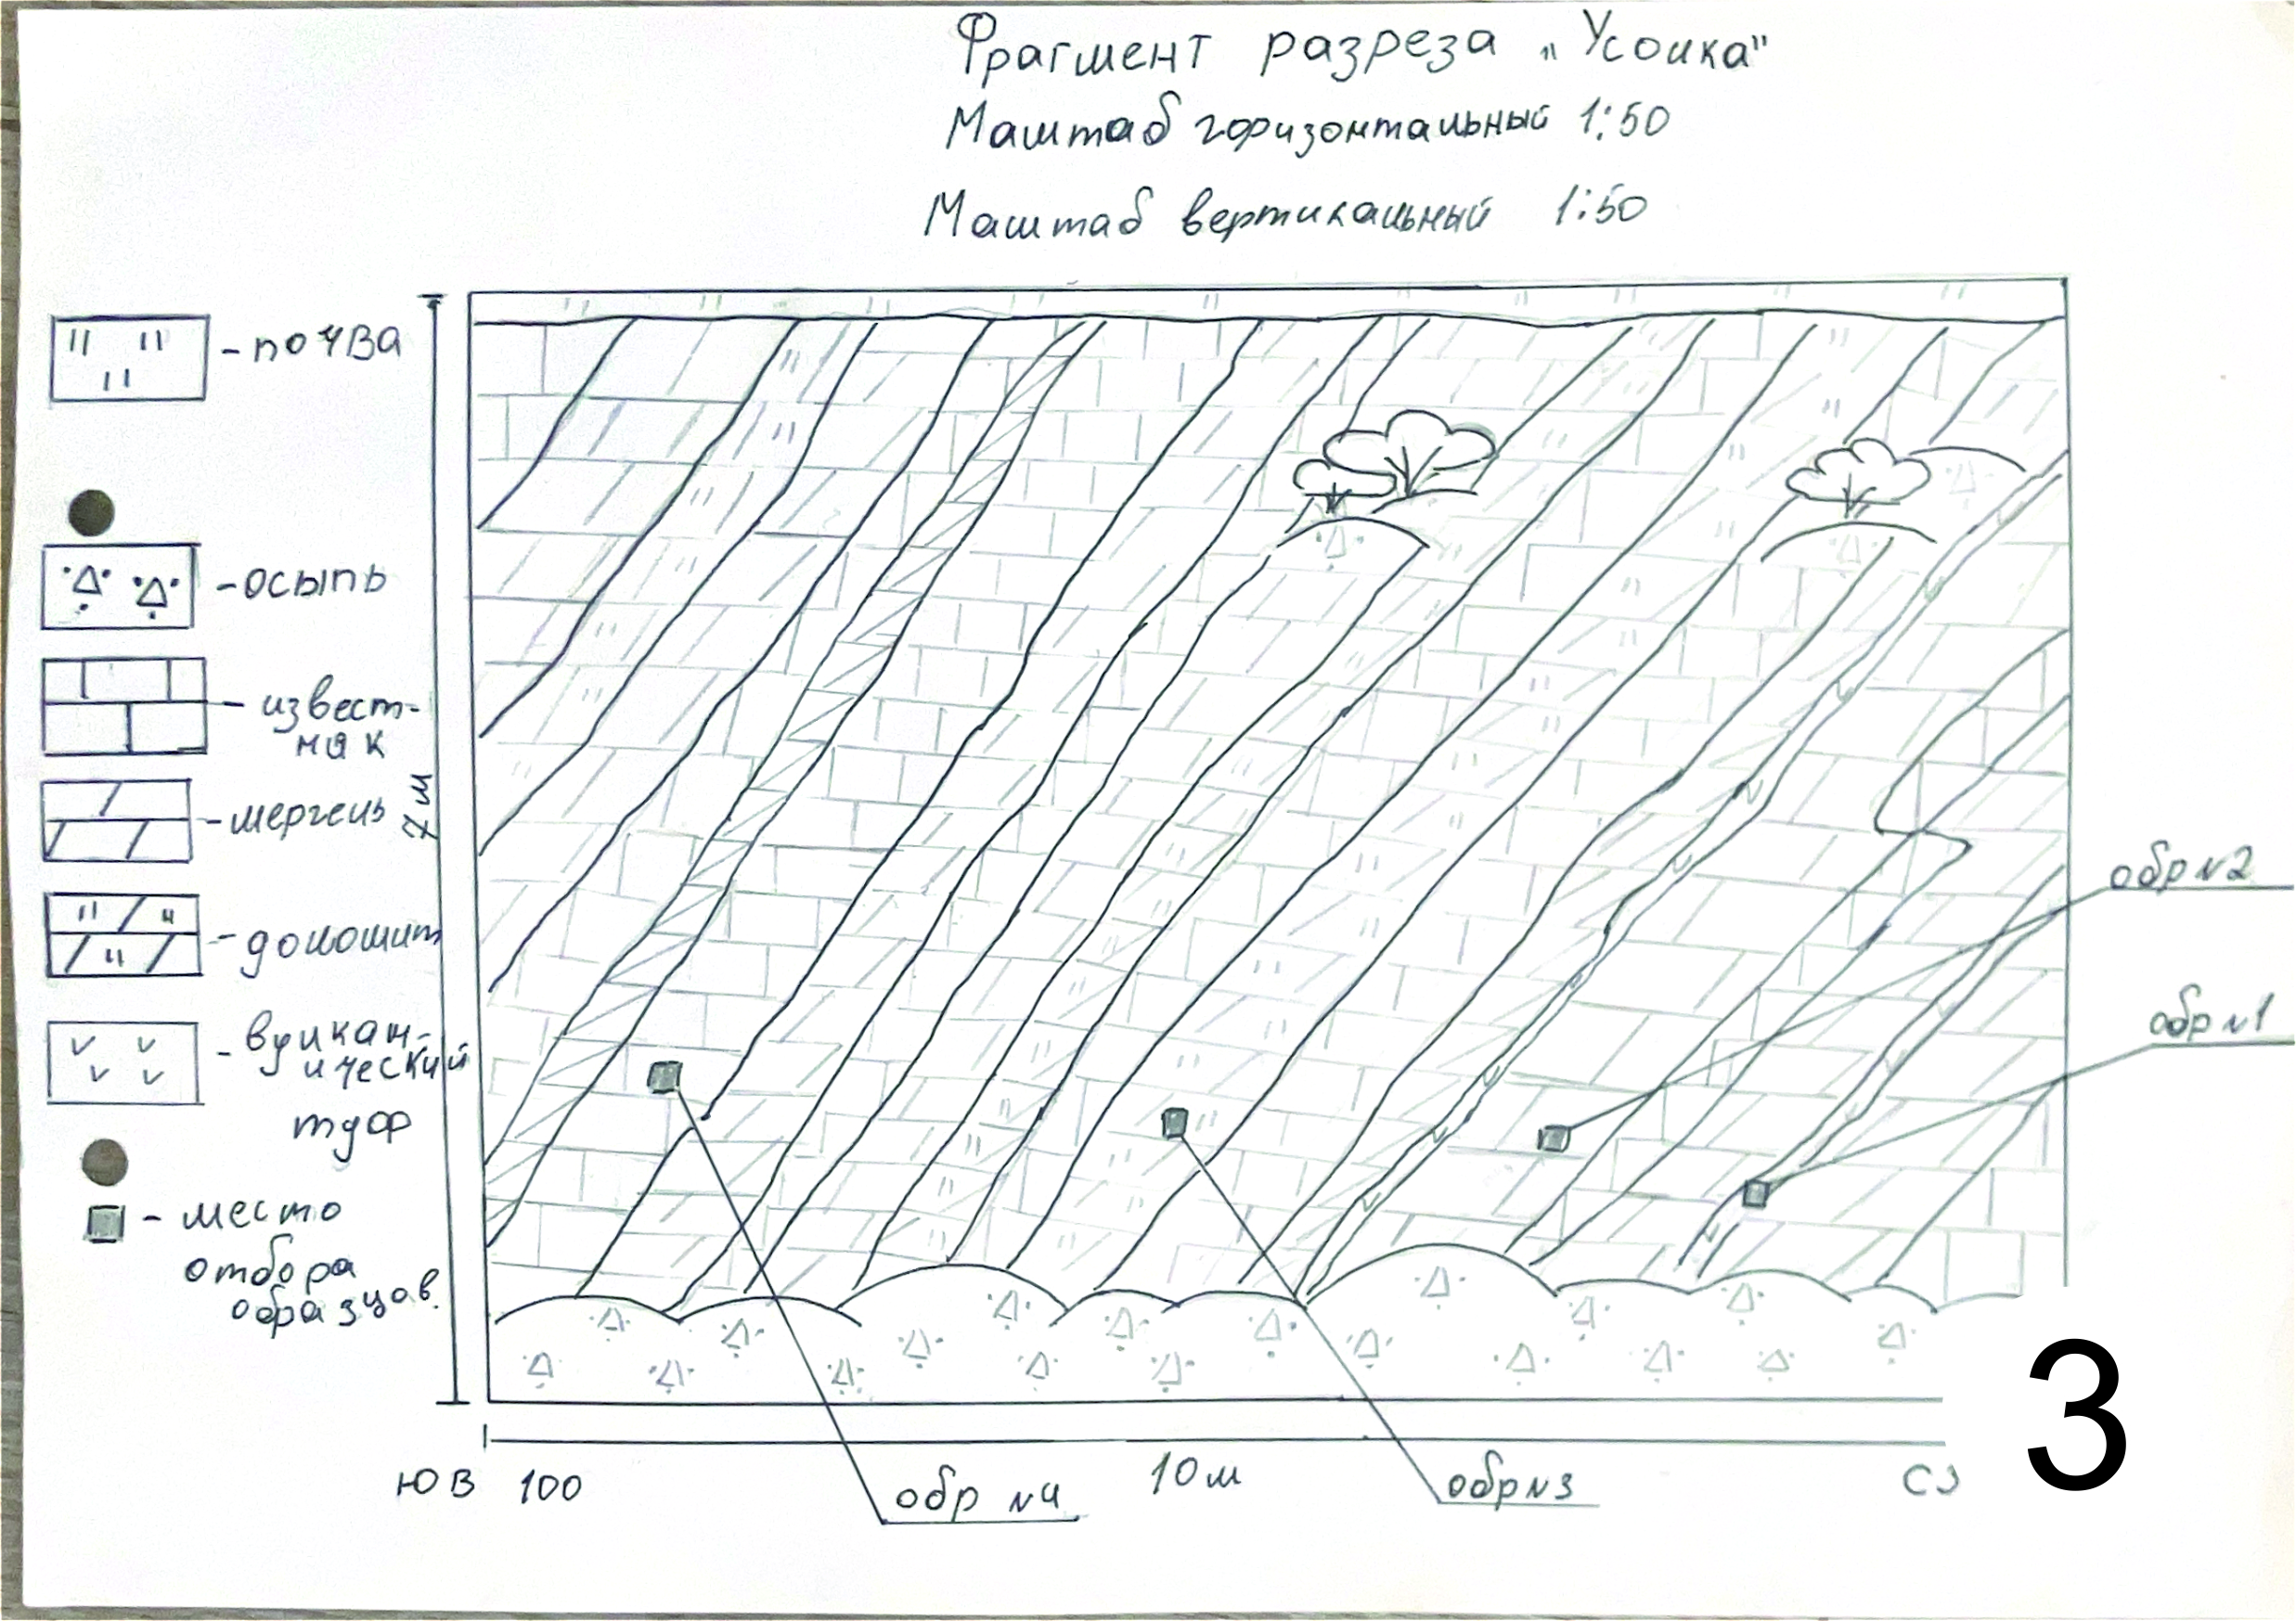 Фрагмент разреза „Усолка"
Маштаб горизонтальный 1:50
Маштаб вертикальный 1:50
- почва
- осыпь
- извест-
няк
- мергель
- доломит
- вулкан-
ический
туф
- место
отбора
образцов.
7 м
обр №2
обр №1
ЮВ 100
10 м
СЗ
обр №4
обр №3
3